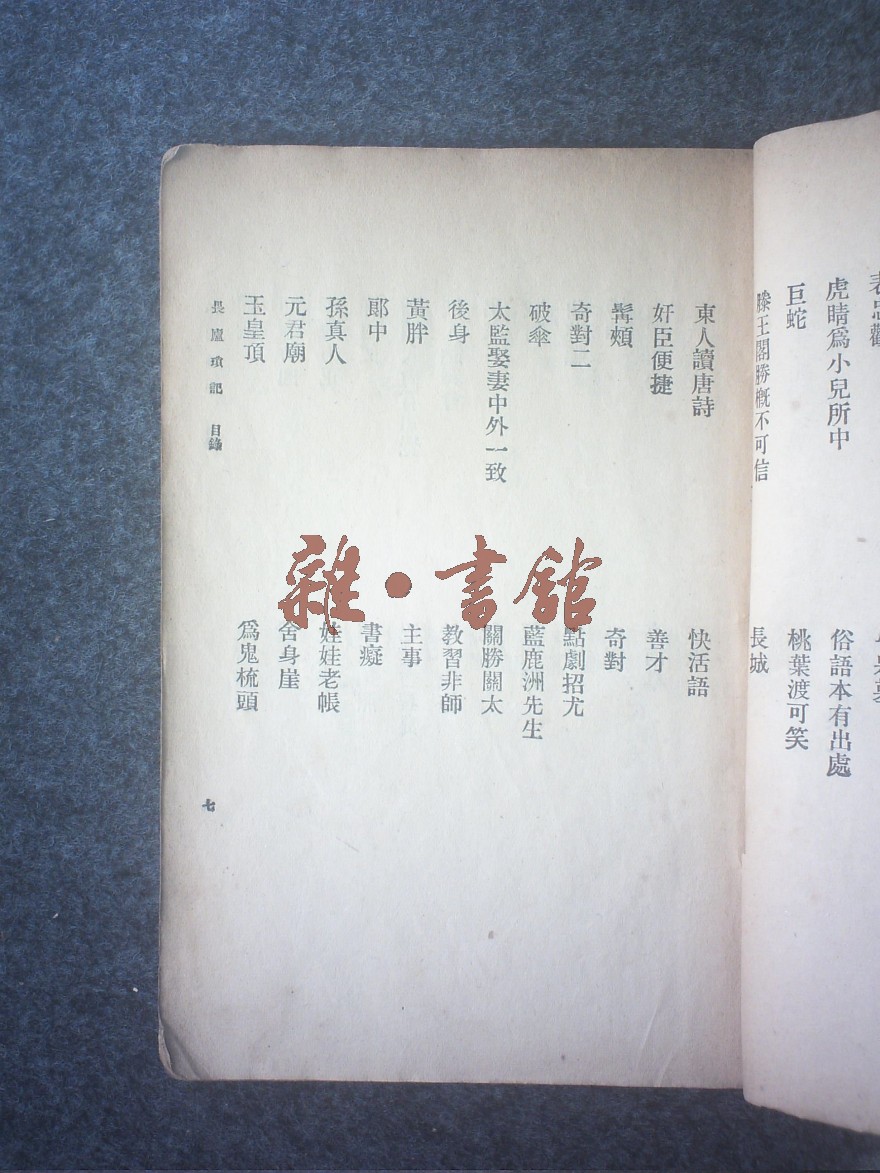 虎睛爲小兒所中
俗語本有出處
巨蛇
桃葉渡可笑
滕王閣勝概不可信
長城
東人讀唐詩
快活語
奸臣便捷
善才
髯頰
奇對
奇對二
點劇招尤
破傘
藍鹿洲先生
太監娶妻中外一致
關勝關太
後身
教習非師
黃胖
主事
郎中
書癡
孫真人
娃娃老帳
元君廟
舍身崖
玉皇頂
爲鬼梳頭
長廬瑣記 目錄
七
雜·書館